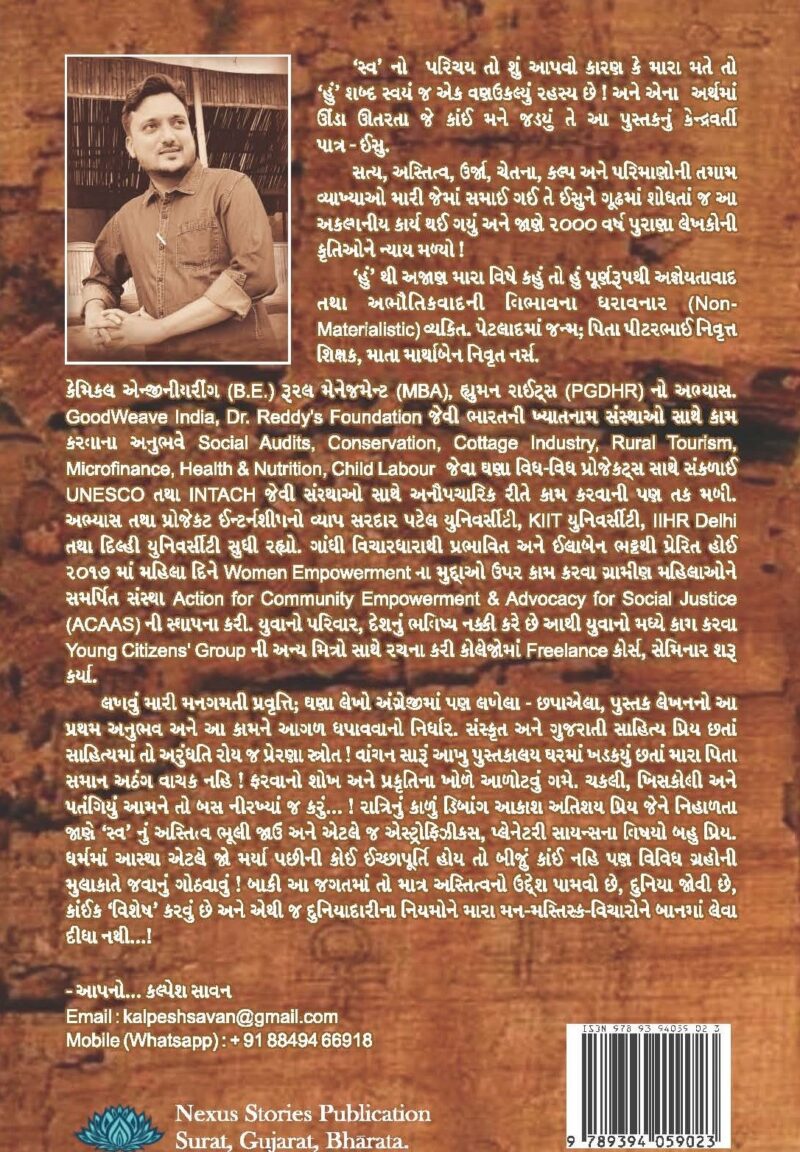 ‘સ્વ’ નો પરિચય તો શું આપવો કારણ કે મારા મતે તો
‘હું’ શબ્દ સ્વયં જ એક વણઉકલ્યું રહસ્ય છે ! અને એના અર્થમાં
ઊંડા ઊતરતા જે કાંઈ મને જડયું તે આ પુસ્તકનું કેન્દ્રવર્તી
પાત્ર - ઈસુ.
સત્ય, અસ્તિત્વ, ઉર્જા, ચેતના, કલ્પ અને પરિમાણોની તમામ
વ્યાખ્યાઓ મારી જેમાં સમાઈ ગઈ તે ઈસુને ગૂઢમાં શોધતાં જ આ
અકલ્પનીય કાર્ય થઈ ગયું અને જાણે ૨૦૦૦ વર્ષ પુરાણા લેખકોની
કૃતિઓને ન્યાય મળ્યો !
‘હું’ થી અજાણ મારા વિષે કહું તો હું પૂર્ણરૂપથી અજ્ઞેયતાવાદ
તથા અભૌતિકવાદની વિભાવના ધરાવનાર (Non-
Materialistic) વ્યકિત. પેટલાદમાં જન્મ; પિતા પીટરભાઈ નિવૃત્ત
શિક્ષક, માતા માર્થાબેન નિવૃત નર્સ.
કેમિકલ એન્જીનીયરીંગ (B.E.) રૂરલ મેનેજમેન્ટ (MBA), હ્યુમન રાઈટ્સ (PGDHR) નો અભ્યાસ.
GoodWeave India, Dr. Reddy's Foundation જેવી ભારતની ખ્યાતનામ સંસ્થાઓ સાથે કામ
કરવાના અનુભવે Social Audits, Conservation, Cottage Industry, Rural Tourism,
Microfinance, Health & Nutrition, Child Labour જેવા ઘણા વિધ-વિધ પ્રોજેકટ્સ સાથે સંકળાઈ
UNESCO તથા INTACH જેવી સંસ્થાઓ સાથે અનૌપચારિક રીતે કામ કરવાની પણ તક મળી.
અભ્યાસ તથા પ્રોજેકટ ઈન્ટર્નશીપનો વ્યાપ સરદાર પટેલ યુનિવર્સીટી, KIIT યુનિવર્સીટી, IIHR Delhi
તથા દિલ્હી યુનિવર્સીટી સુધી રહ્યો. ગાંધી વિચારધારાથી પ્રભાવિત અને ઈલાબેન ભટ્ટથી પ્રેરિત હોઈ
૨૦૧૭ માં મહિલા દિને Women Empowerment ના મુદ્દાઓ ઉપર કામ કરવા ગ્રામીણ મહિલાઓને
સમર્પિત સંસ્થા Action for Community Empowerment & Advocacy for Social Justice
(ACAAS) ની સ્થાપના કરી. યુવાનો પરિવાર, દેશનું ભવિષ્ય નક્કી કરે છે આથી યુવાનો મધ્યે કામ કરવા
Young Citizens' Group ની અન્ય મિત્રો સાથે રચના કરી કોલેજોમાં Freelance કોર્સ, સેમિનાર શરૂ
કર્યા.
લખવું મારી મનગમતી પ્રવૃત્તિ; ઘણા લેખો અંગ્રેજીમાં પણ લખેલા - છપાએલા, પુસ્તક લેખનનો આ
પ્રથમ અનુભવ અને આ કામને આગળ ધપાવવાનો નિર્ધાર. સંસ્કૃત અને ગુજરાતી સાહિત્ય પ્રિય છતાં
સાહિત્યમાં તો અરુંધતિ રોય જ પ્રેરણા સ્ત્રોત ! વાંચન સારૂં આખુ પુસ્તકાલય ઘરમાં ખડકયું છતાં મારા પિતા
સમાન અઠંગ વાચક નહિ ! ફરવાનો શોખ અને પ્રકૃતિના ખોળે આળોટવું ગમે. ચકલી, ખિસકોલી અને
પતંગિયું આમને તો બસ નીરખ્યાં જ કરું... ! રાત્રિનું કાળું ડિબાંગ આકાશ અતિશય પ્રિય જેને નિહાળતા
જાણે ‘સ્વ’ નું અસ્તિત્વ ભૂલી જાઉં અને એટલે જ એસ્ટ્રોફિઝીકસ, પ્લેનેટરી સાયન્સના વિષયો બહુ પ્રિય.
ધર્મમાં આસ્થા એટલે જો મર્યા પછીની કોઈ ઈચ્છાપૂર્તિ હોય તો બીજું કાંઈ નહિ પણ વિવિધ ગ્રહોની
મુલાકાતે જવાનું ગોઠવાવું ! બાકી આ જગતમાં તો માત્ર અસ્તિત્વનો ઉદ્દેશ પામવો છે, દુનિયા જોવી છે,
કાંઈક ‘વિશેષ’ કરવું છે અને એથી જ દુનિયાદારીના નિયમોને મારા મન-મસ્તિસ્ક-વિચારોને બાનમાં લેવા
દીધા નથી...!
- આપનો... કલ્પેશ સાવન
Email : kalpeshsavan@gmail.com
Mobile (Whatsapp) : + 91 88494 66918
ISBN 978 93 94059 02 3
9 789394 059023
Nexus Stories Publication
Surat, Gujarat, Bhārata.